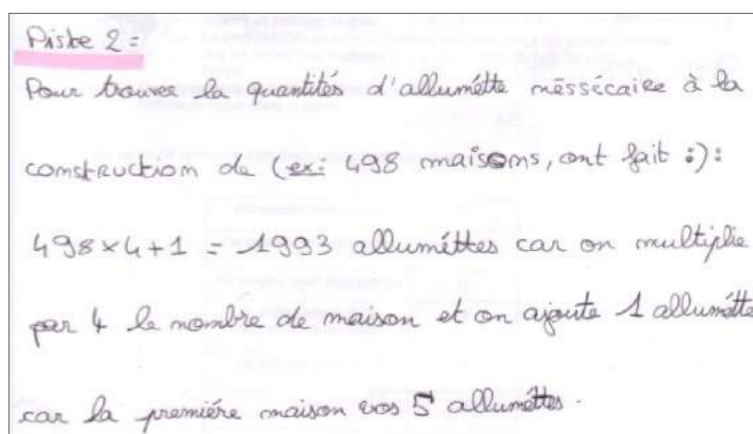 Piste 2 =
Pour trouver la quantités d'allumétte néssécaire à la
construction de (ex: 498 maisons, ont fait :) :
498×4+1 = 1993 alluméttes car on multiplie
par 4 le nombre de maison et on ajoute 1 allumétte
car la premiére maison vos 5 alluméttes.